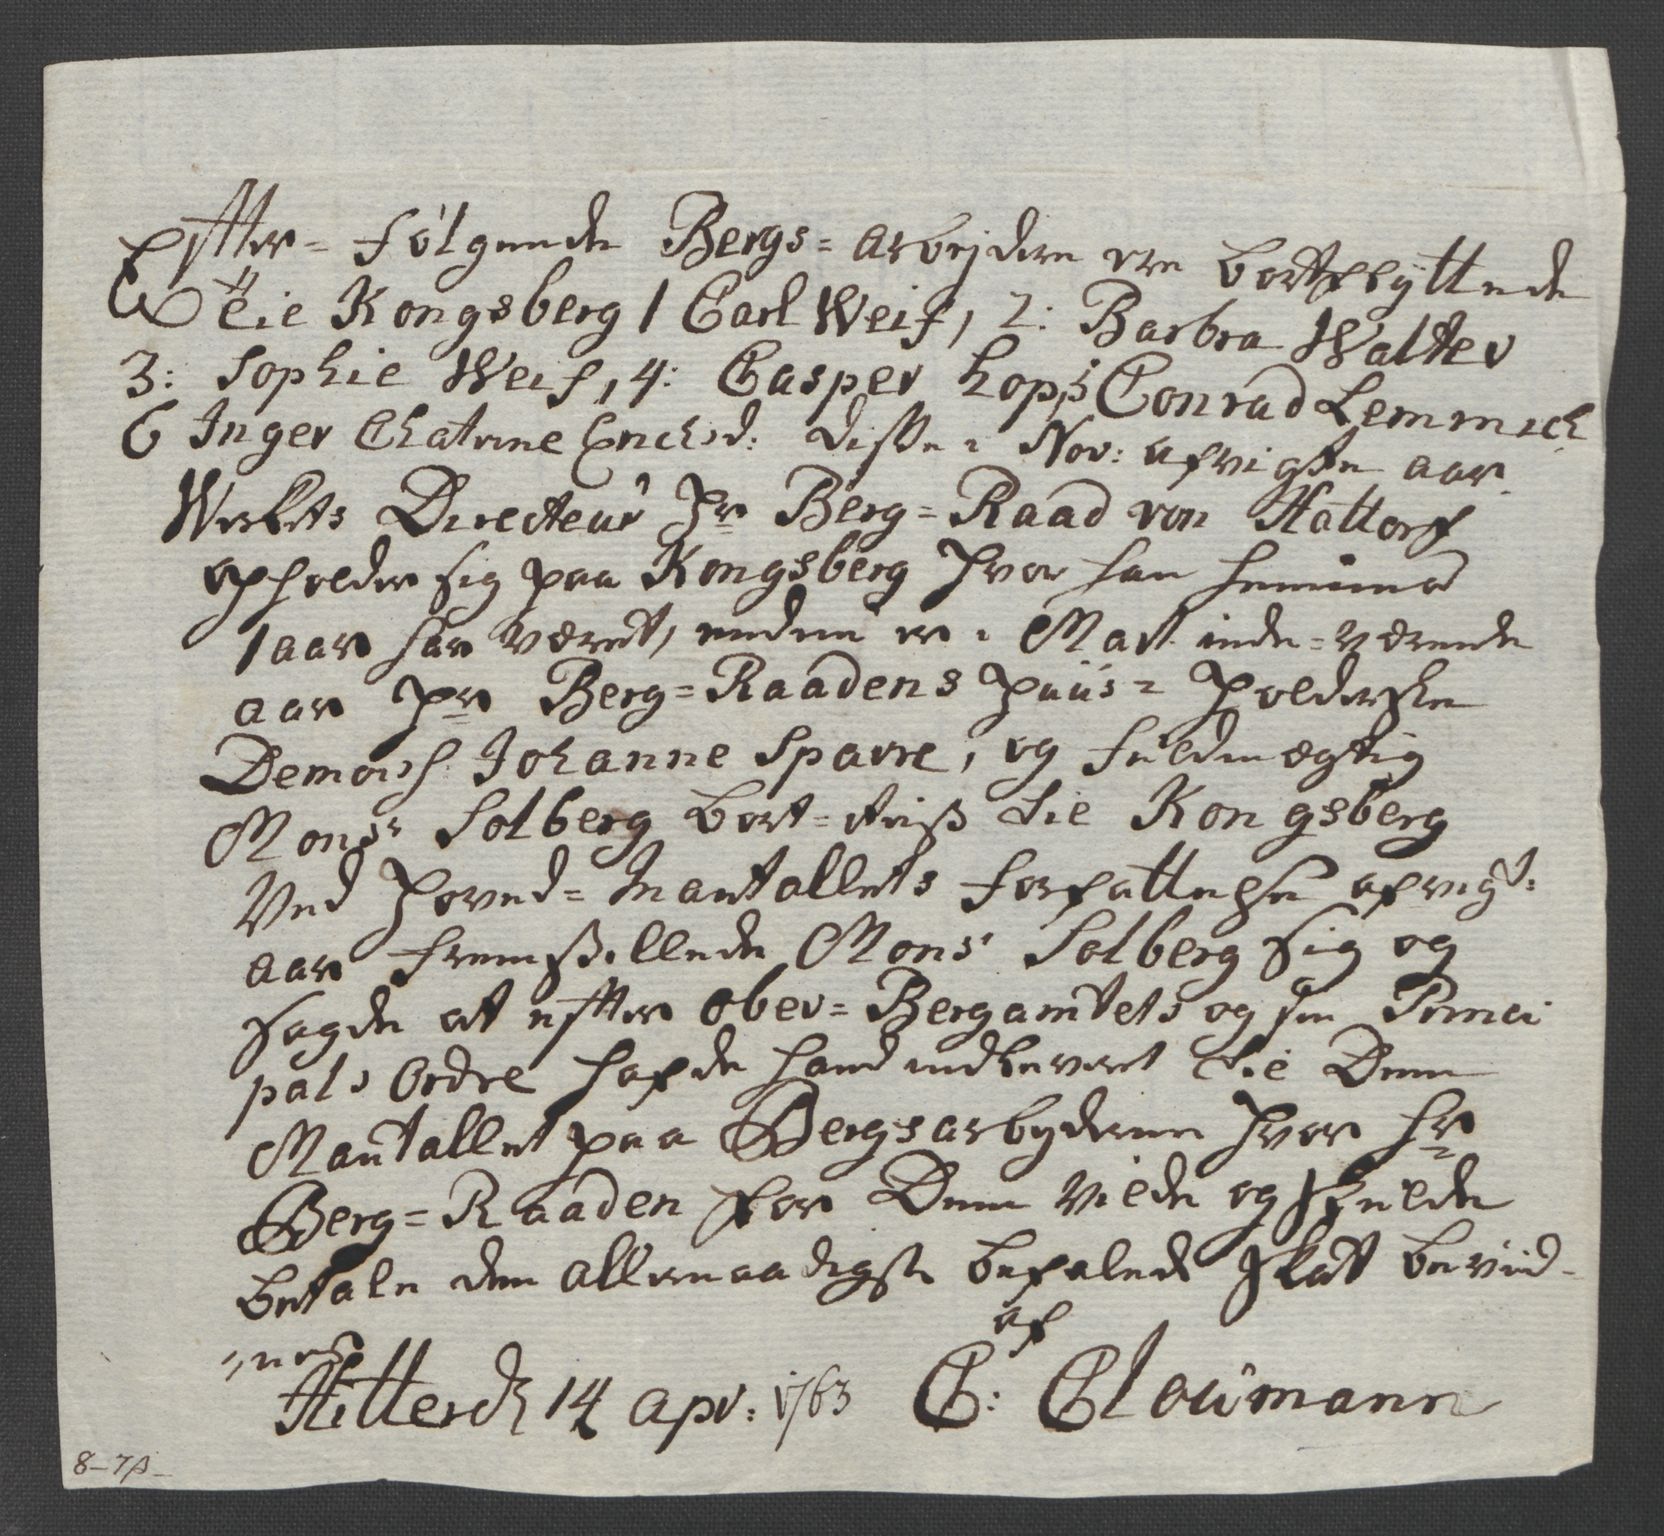 Efter-følgende Bergs-arbejdere ere bortflyttede
til Kongsberg 1 Carl Weis, 2: Barbra Walter
3: Sophie Weis, 4: Casper Hopp 5 Conrad Lemmich
6 Inger Chatrine Erichsd: disse i Nov: afvigte aar
Werkets Directeur Hr Berg-Raad von Hattorf
opholder sig paa Kongsberg hvor han henimod
1 aar har været, endnu er i Mart. inde-værende
aar Hr Berg-Raadens Huus-Holderske
Demois: Johanne Sparre, og fuldmægtig
Monsr Solberg bort-reist til Kongsberg
Ved Hoved-Mantallets forfattelse afvigt:
aar fremstillede Monsr Solberg sig og
sagde at efter Ober-Bergamtets og sin Princi
pals Ordre hafde hand indleveret til Dem
Mantallet paa Bergsarbejderne hvor Hr
Berg-Raaden for Dem vilde og skulde
betale den allernaadigst befalede Skat bevid-
nes af
Hitterdl 14 Apr: 1763 C: Cloumann
8-7β-